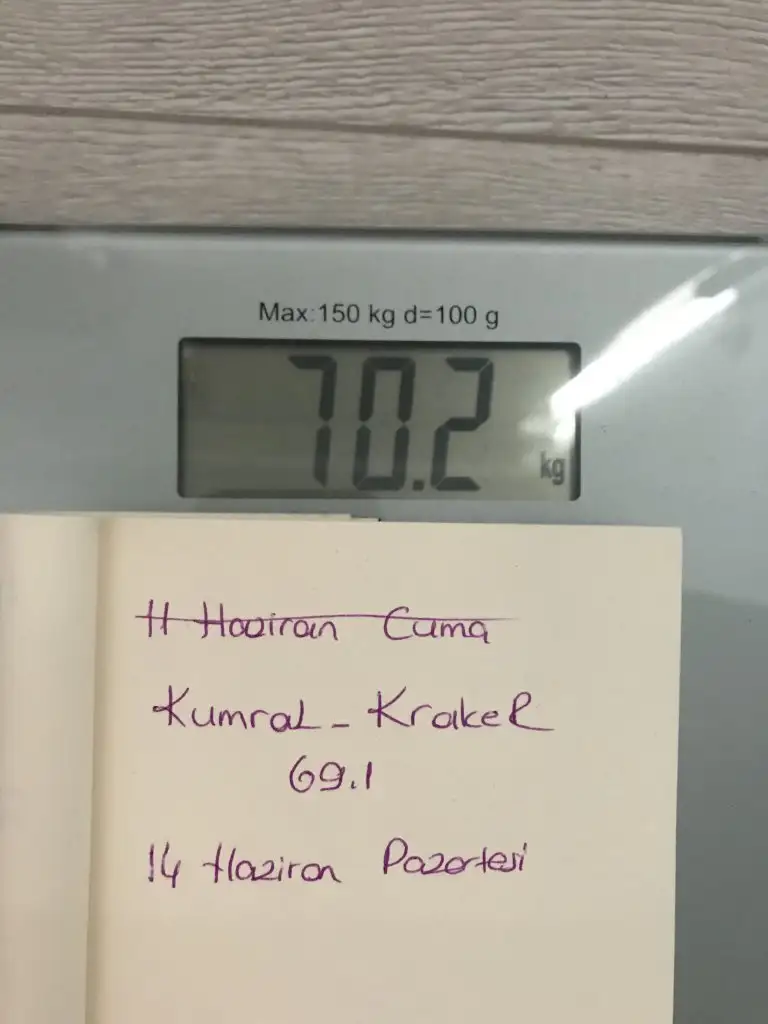 Max:150 kg d=100 g
70.2 kg
11 Haziran Cuma
Kumral - Kraker
69.1
14 Haziran Pazartesi